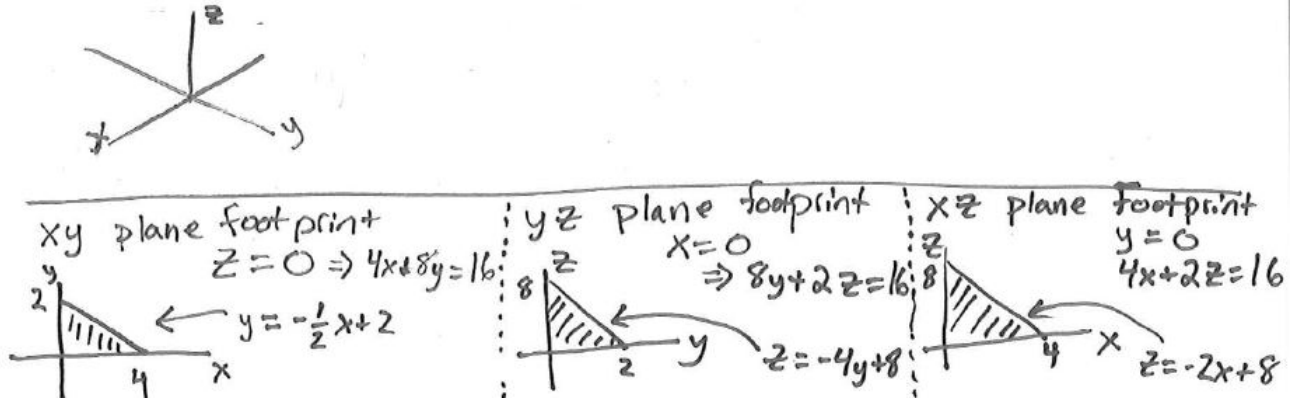 z
x
y
xy plane footprint
z = 0 ⇒ 4x+8y=16
y
2
y = -1/2 x + 2
4
x
yz plane footprint
x = 0
⇒ 8y+2z=16
z
8
2
y
z = -4y+8
xz plane footprint
y = 0
4x+2z=16
z
8
4
x
z = -2x+8